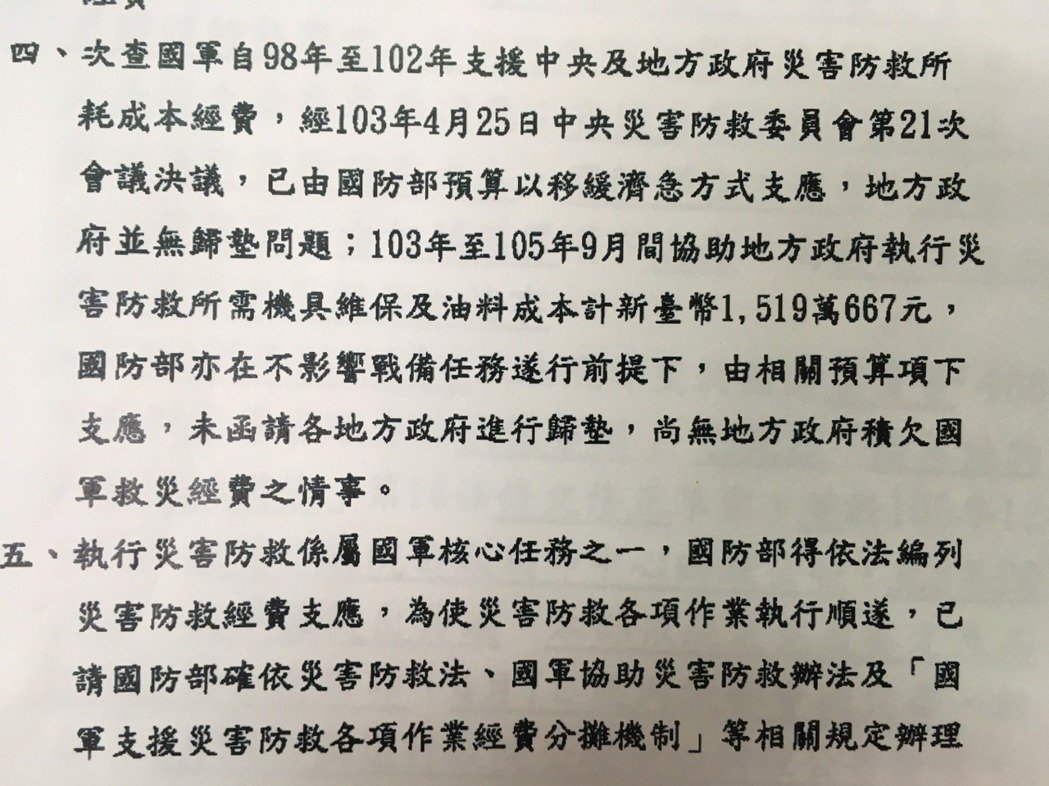 經費
四、次查國軍自98年至102年支援中央及地方政府災害防救所
耗成本經費，經103年4月25日中央災害防救委員會第21次
會議決議，已由國防部預算以移緩濟急方式支應，地方政
府並無歸墊問題；103年至105年9月間協助地方政府執行災
害防救所需機具維保及油料成本計新臺幣1,519萬667元，
國防部亦在不影響戰備任務遂行前提下，由相關預算項下
支應，未函請各地方政府進行歸墊，尚無地方政府積欠國
軍救災經費之情事。
五、執行災害防救係屬國軍核心任務之一，國防部得依法編列
災害防救經費支應，為使災害防救各項作業執行順遂，已
請國防部確依災害防救法、國軍協助災害防救辦法及「國
軍支援災害防救各項作業經費分攤機制」等相關規定辦理